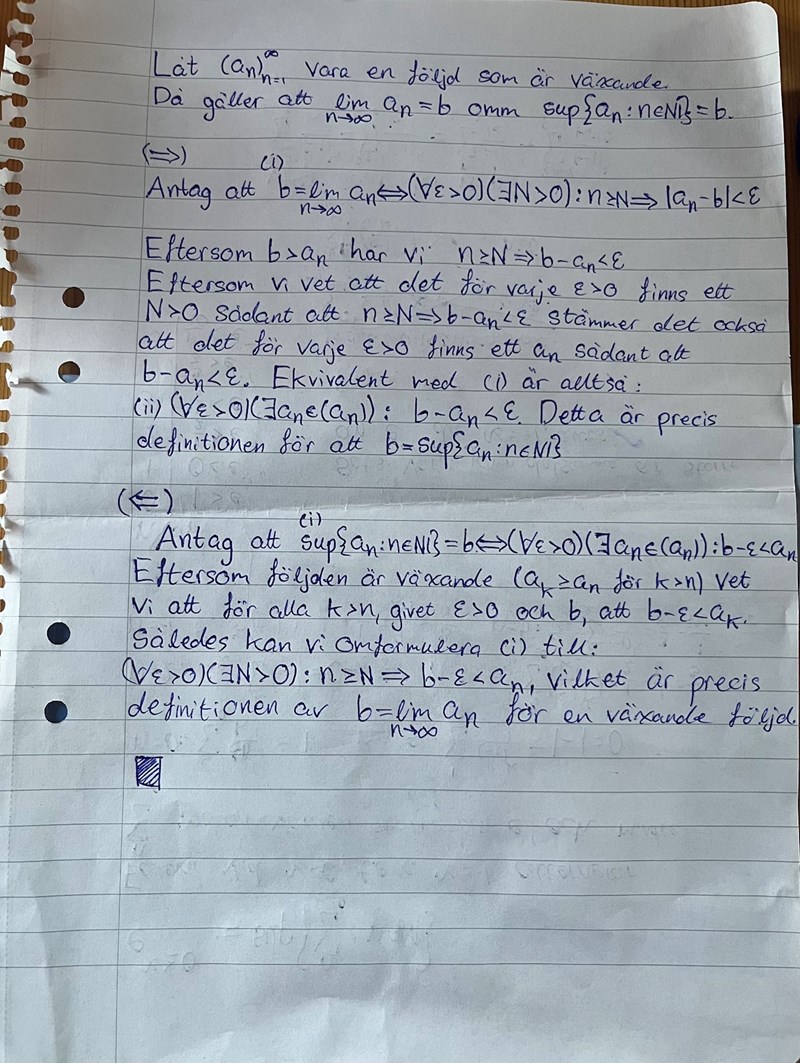 Låt (aₙ)ₙ₌₁^∞ vara en följd som är växande.
Då gäller att lim_{n→∞} aₙ = b omm sup{aₙ : n∈ℕ} = b.
(⇒)
Antag att b = lim_{n→∞} aₙ ⇔ (i) (∀ε>0)(∃N>0) : n≥N ⇒ |aₙ-b|<ε
Eftersom b>aₙ har vi n≥N ⇒ b-aₙ<ε
Eftersom vi vet att det för varje ε>0 finns ett
N>0 sådant att n≥N ⇒ b-aₙ<ε stämmer det också
att det för varje ε>0 finns ett aₙ sådant att
b-aₙ<ε. Ekvivalent med (i) är alltså:
(ii) (∀ε>0)(∃aₙ∈(aₙ)) : b-aₙ<ε. Detta är precis
definitionen för att b = sup{aₙ : n∈ℕ}
(⇐)
Antag att sup{aₙ : n∈ℕ} = b ⇔ (i) (∀ε>0)(∃aₙ∈(aₙ)) : b-ε<aₙ
Eftersom följden är växande (aₖ≥aₙ för k>n) vet
vi att för alla k>n, givet ε>0 och b, att b-ε<aₖ.
Således kan vi omformulera (i) till:
(∀ε>0)(∃N>0) : n≥N ⇒ b-ε<aₙ, vilket är precis
definitionen av b = lim_{n→∞} aₙ för en växande följd.